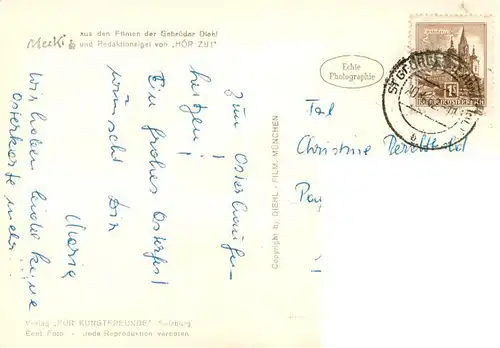 Mecki
aus den Filmen der Gebrüder Diehl
und Redaktionsigel von „HÖR ZU!“
Zum Osterhaufen-
heizen!
Ein frohes Osterfest
wünscht Dir
Maria
Wir haben leider keine
Osterkarte mehr.
Verlag „FÜR KUNSTFREUNDE“ Salzburg
Echt Foto - Jede Reproduktion verboten
Copyright by DIEHL - FILM, MÜNCHEN
Echte
Photographie
ST. GEORGEN
1S
Christine